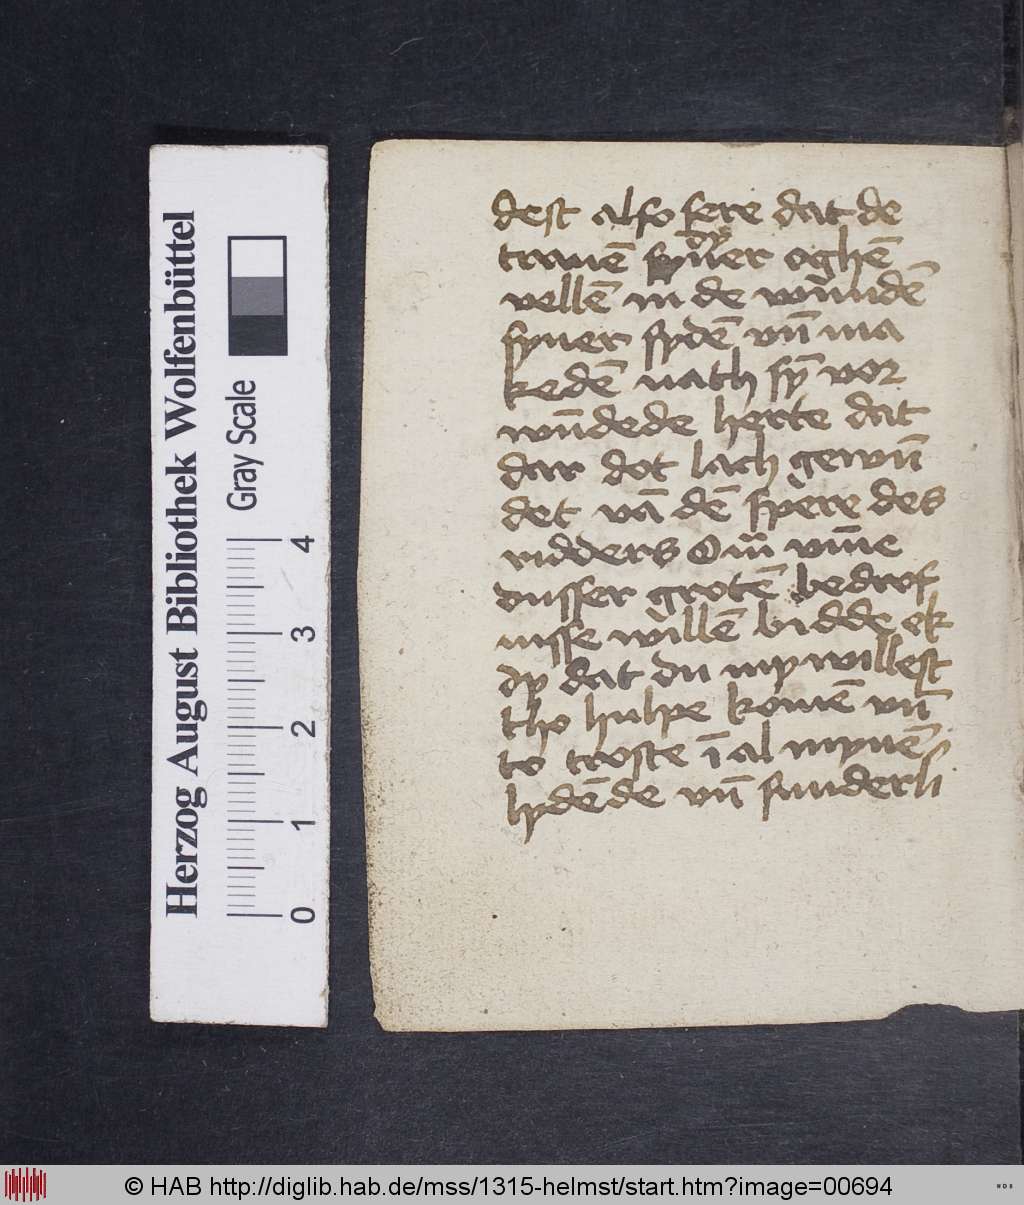 Herzog August Bibliothek Wolfenbüttel
Gray Scale
0 1 2 3 4
dest also sere dat de
tranē dyner oghē
vellē in de wūndē
syner sydē vn̄ ma
kedē nath sȳ vor
wūdede herte dat
dar dot lach gewū
det vā dē spere des
ridders Om̄ vm̄e
dusser grotē bedrof
nisse willē bidde ek
dy dat du my willest
tho hulpe komē vn̄
to troste ī al mynē
lydēde vn̄ sunderli
© HAB http://diglib.hab.de/mss/1315-helmst/start.htm?image=00694